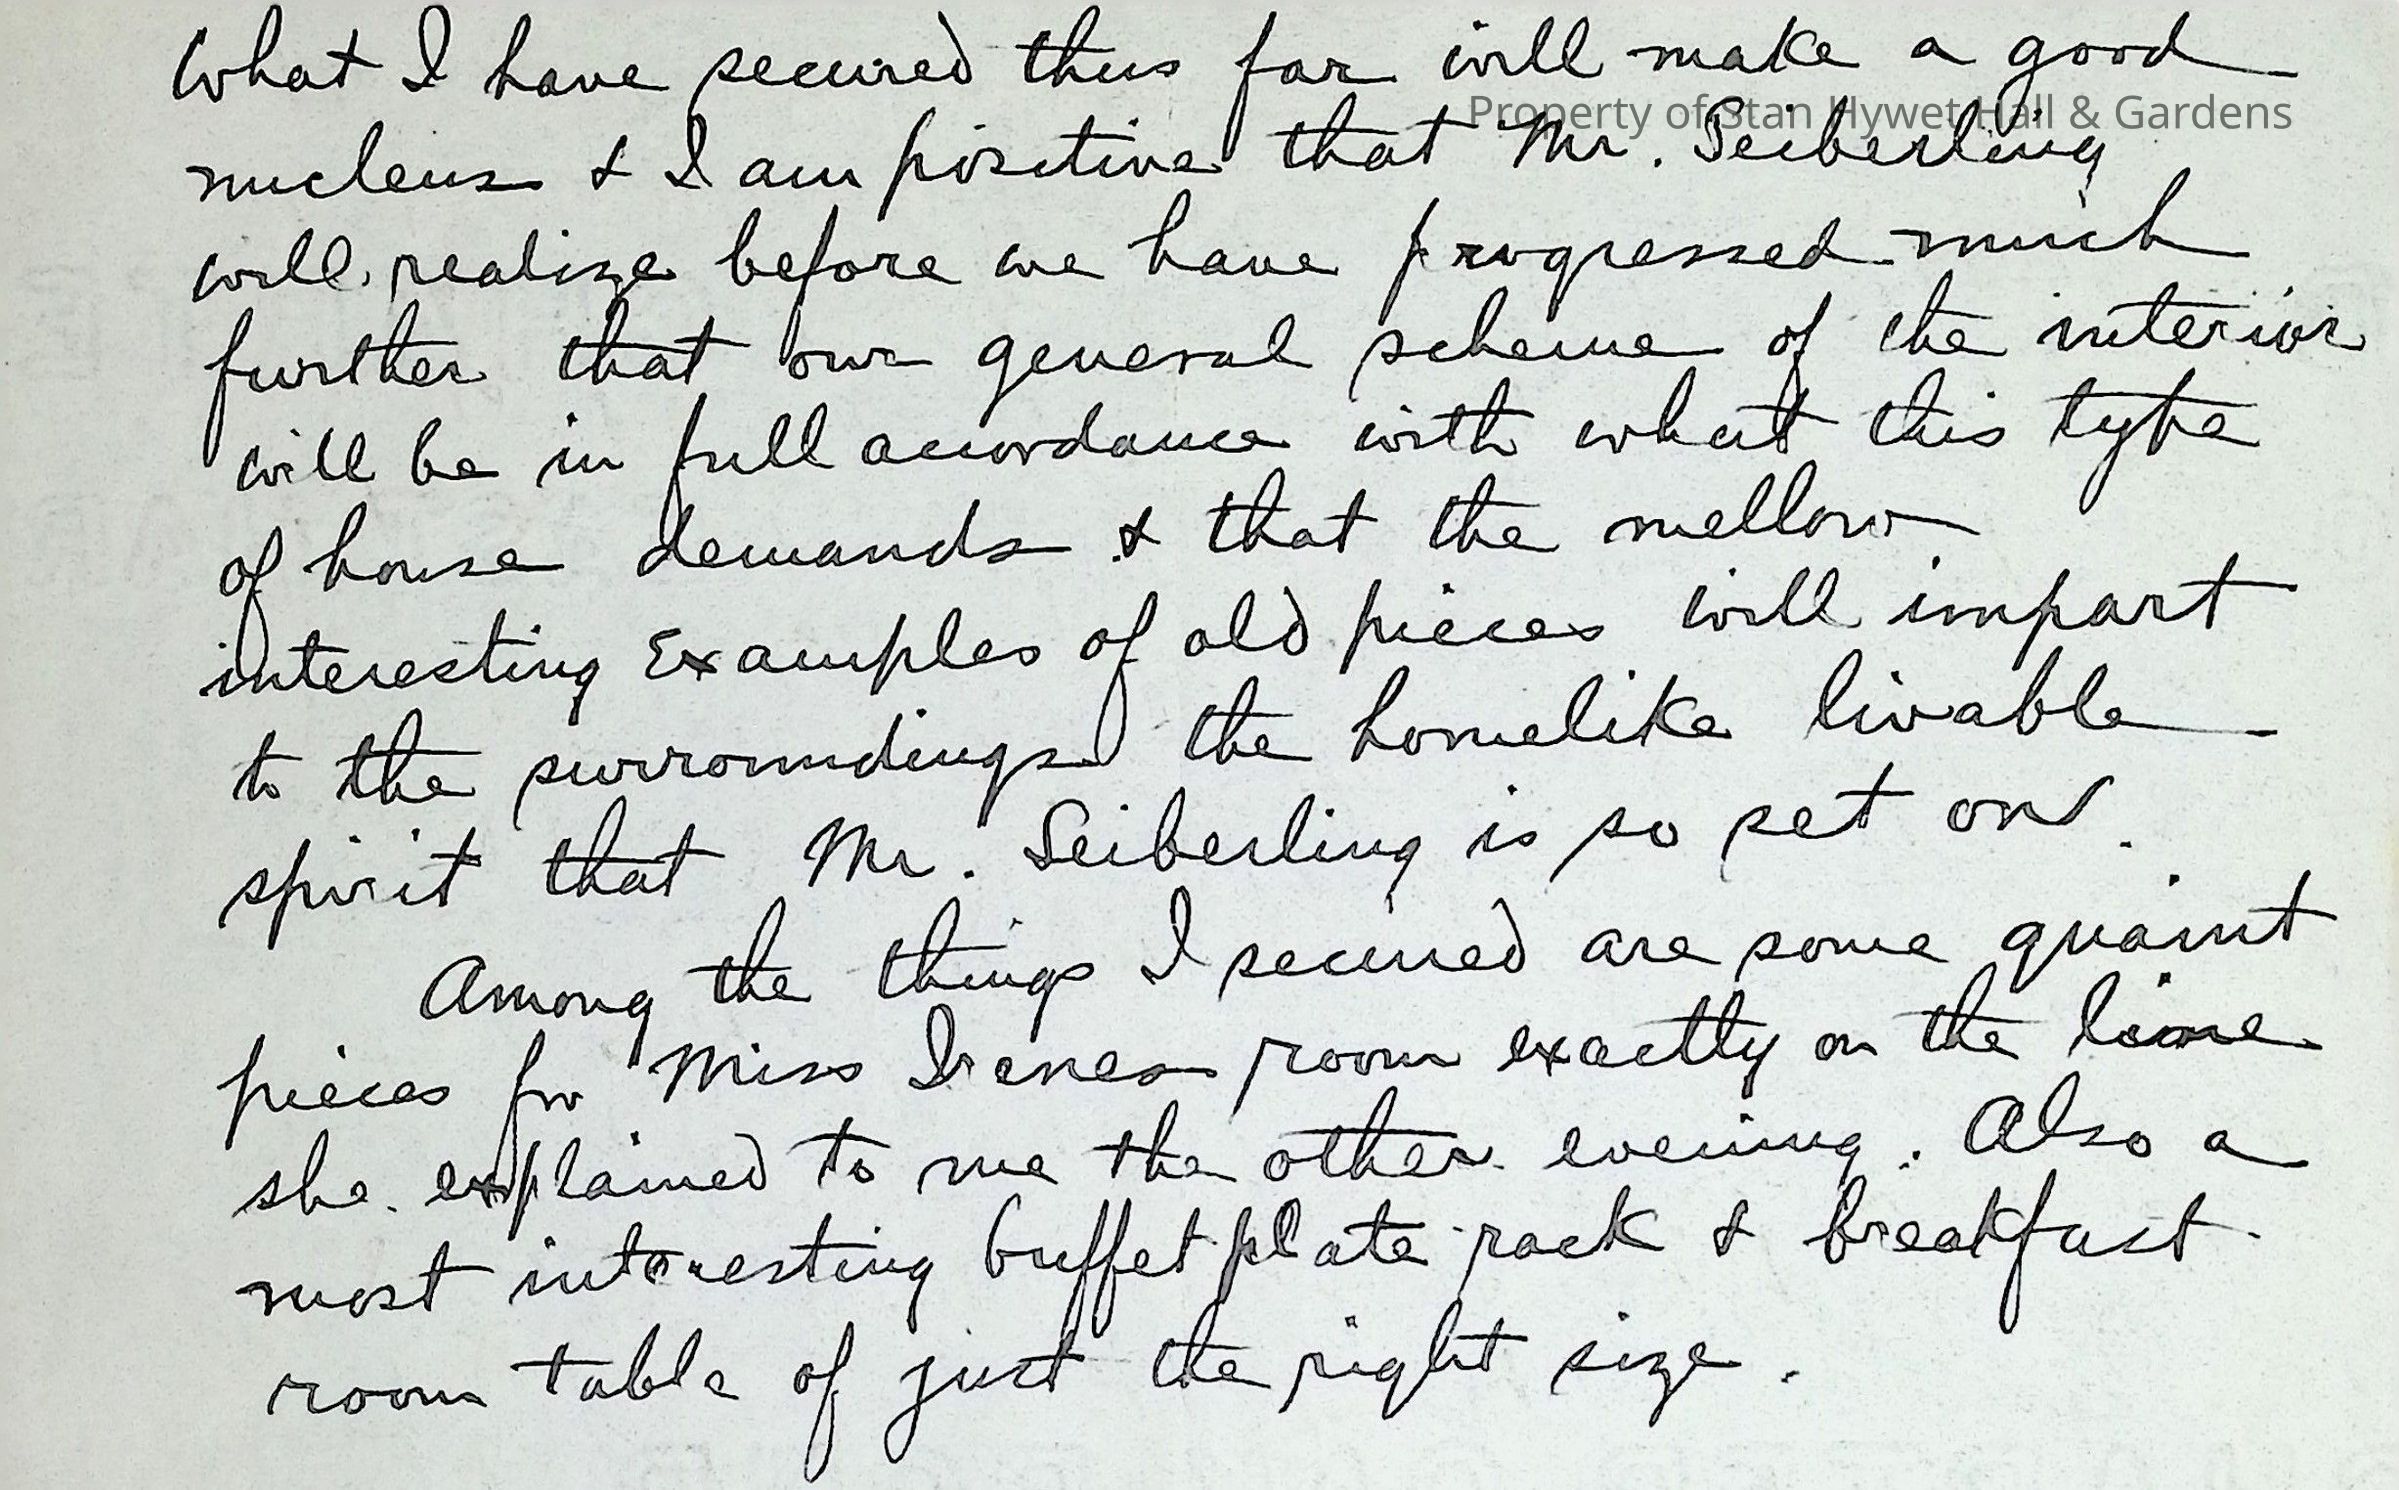 What I have secured thus far will make a good
Property of Stan Hywet Hall & Gardens
nucleus & I am positive that Mr. Seiberling
will realize before we have progressed much
further that our general scheme of the interior
will be in full accordance with what this type
of house demands & that the mellow
interesting Examples of old pieces will impart
to the surroundings the homelike livable
spirit that Mr. Seiberling is so set on.
Among the things I secured are some quaint
pieces for Miss Irenes room exactly on the line
she explained to me the other evening. Also a
most interesting buffet plate rack & breakfast
room table of just the right size.